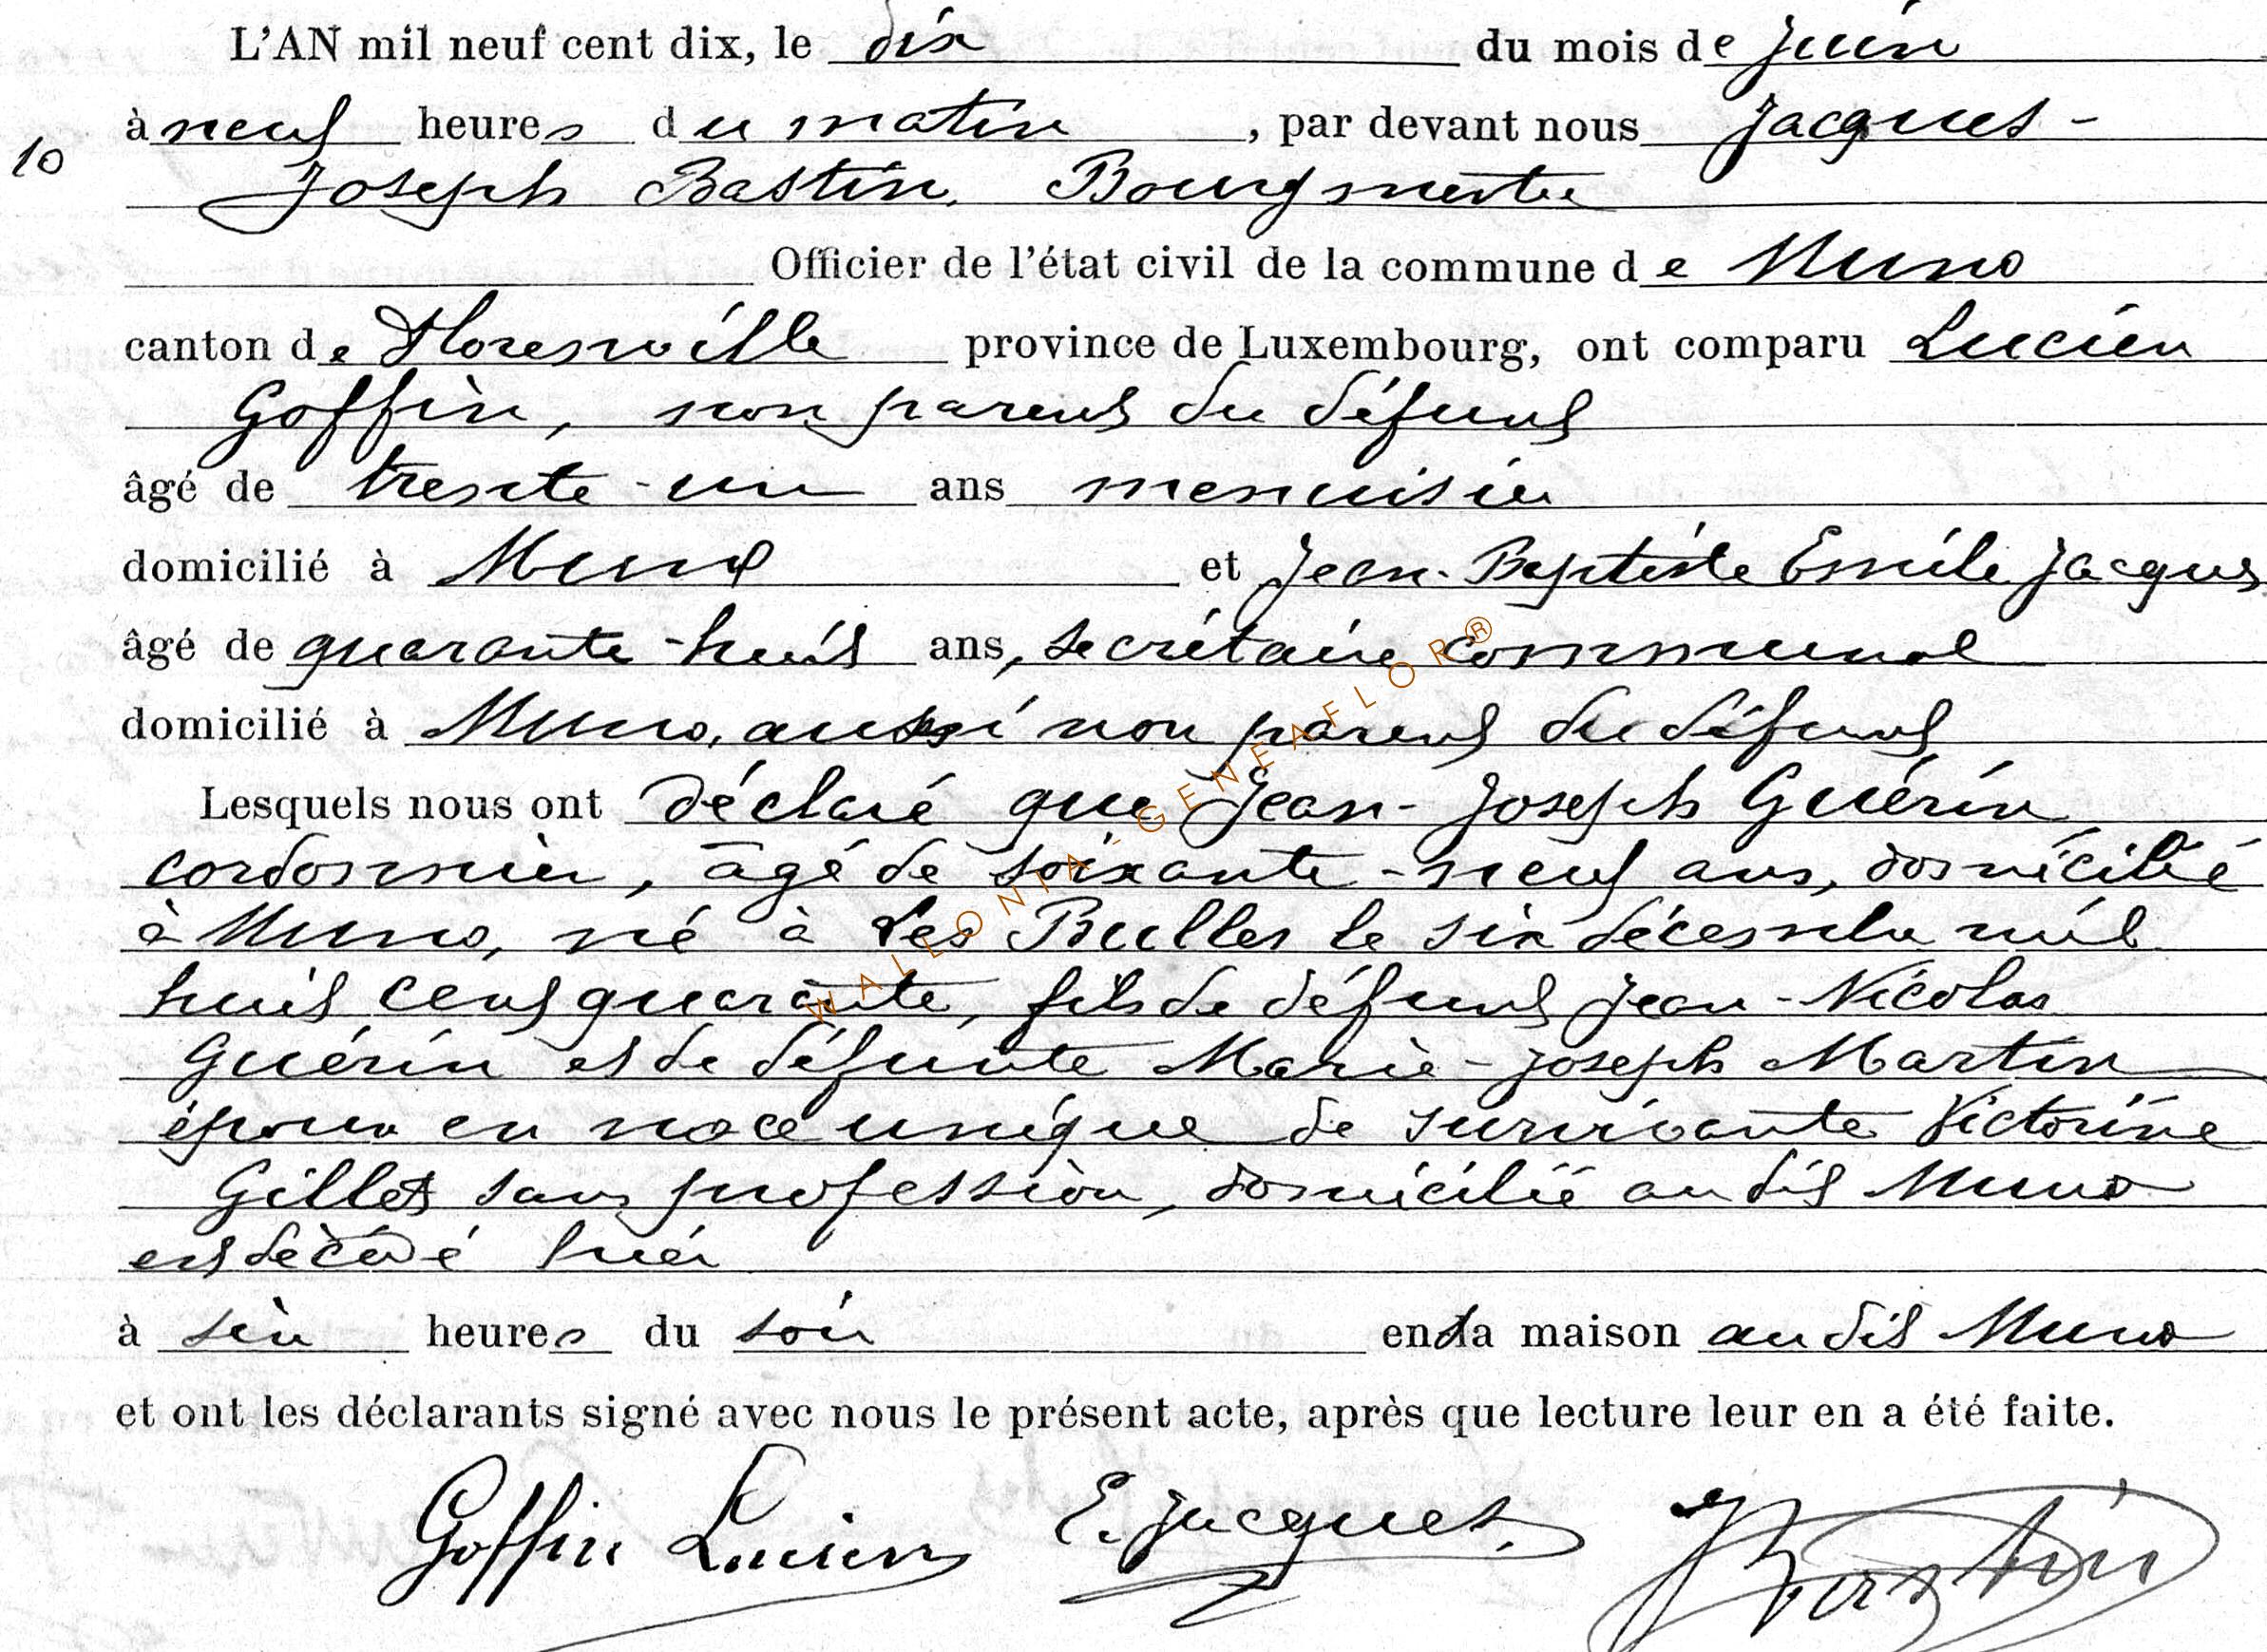 L'AN mil neuf cent dix, le dix du mois de juin
à neuf heures du matin, par devant nous Jacques-
10
Joseph Bastin, Bourgmestre
Officier de l'état civil de la commune de Muno
canton de Florenville province de Luxembourg, ont comparu Lucien
Goffin, non parent du défunt
âgé de trente-un ans menuisier
domicilié à Muno et Jean-Baptiste Emile Jacques
âgé de quarante-huit ans, secrétaire communal
domicilié à Muno, aussi non parent du défunt
Lesquels nous ont déclaré que Jean-Joseph Guérin
cordonnier, âgé de soixante-neuf ans, domicilié
à Muno, né à Les Bulles le six décembre mil
huit cent quarante, fils de défunt Jean-Nicolas
Guérin et de défunte Marie-Joseph Martin
époux en noce unique de survivante Victorine
Gillet sans profession, domicilié au dit Muno
est décédé hier
à six heures du soir en sa maison au dit Muno
et ont les déclarants signé avec nous le présent acte, après que lecture leur en a été faite.
Goffin Lucien E. Jacques. J Bastin
WALLONIA-GENEAFLOR®